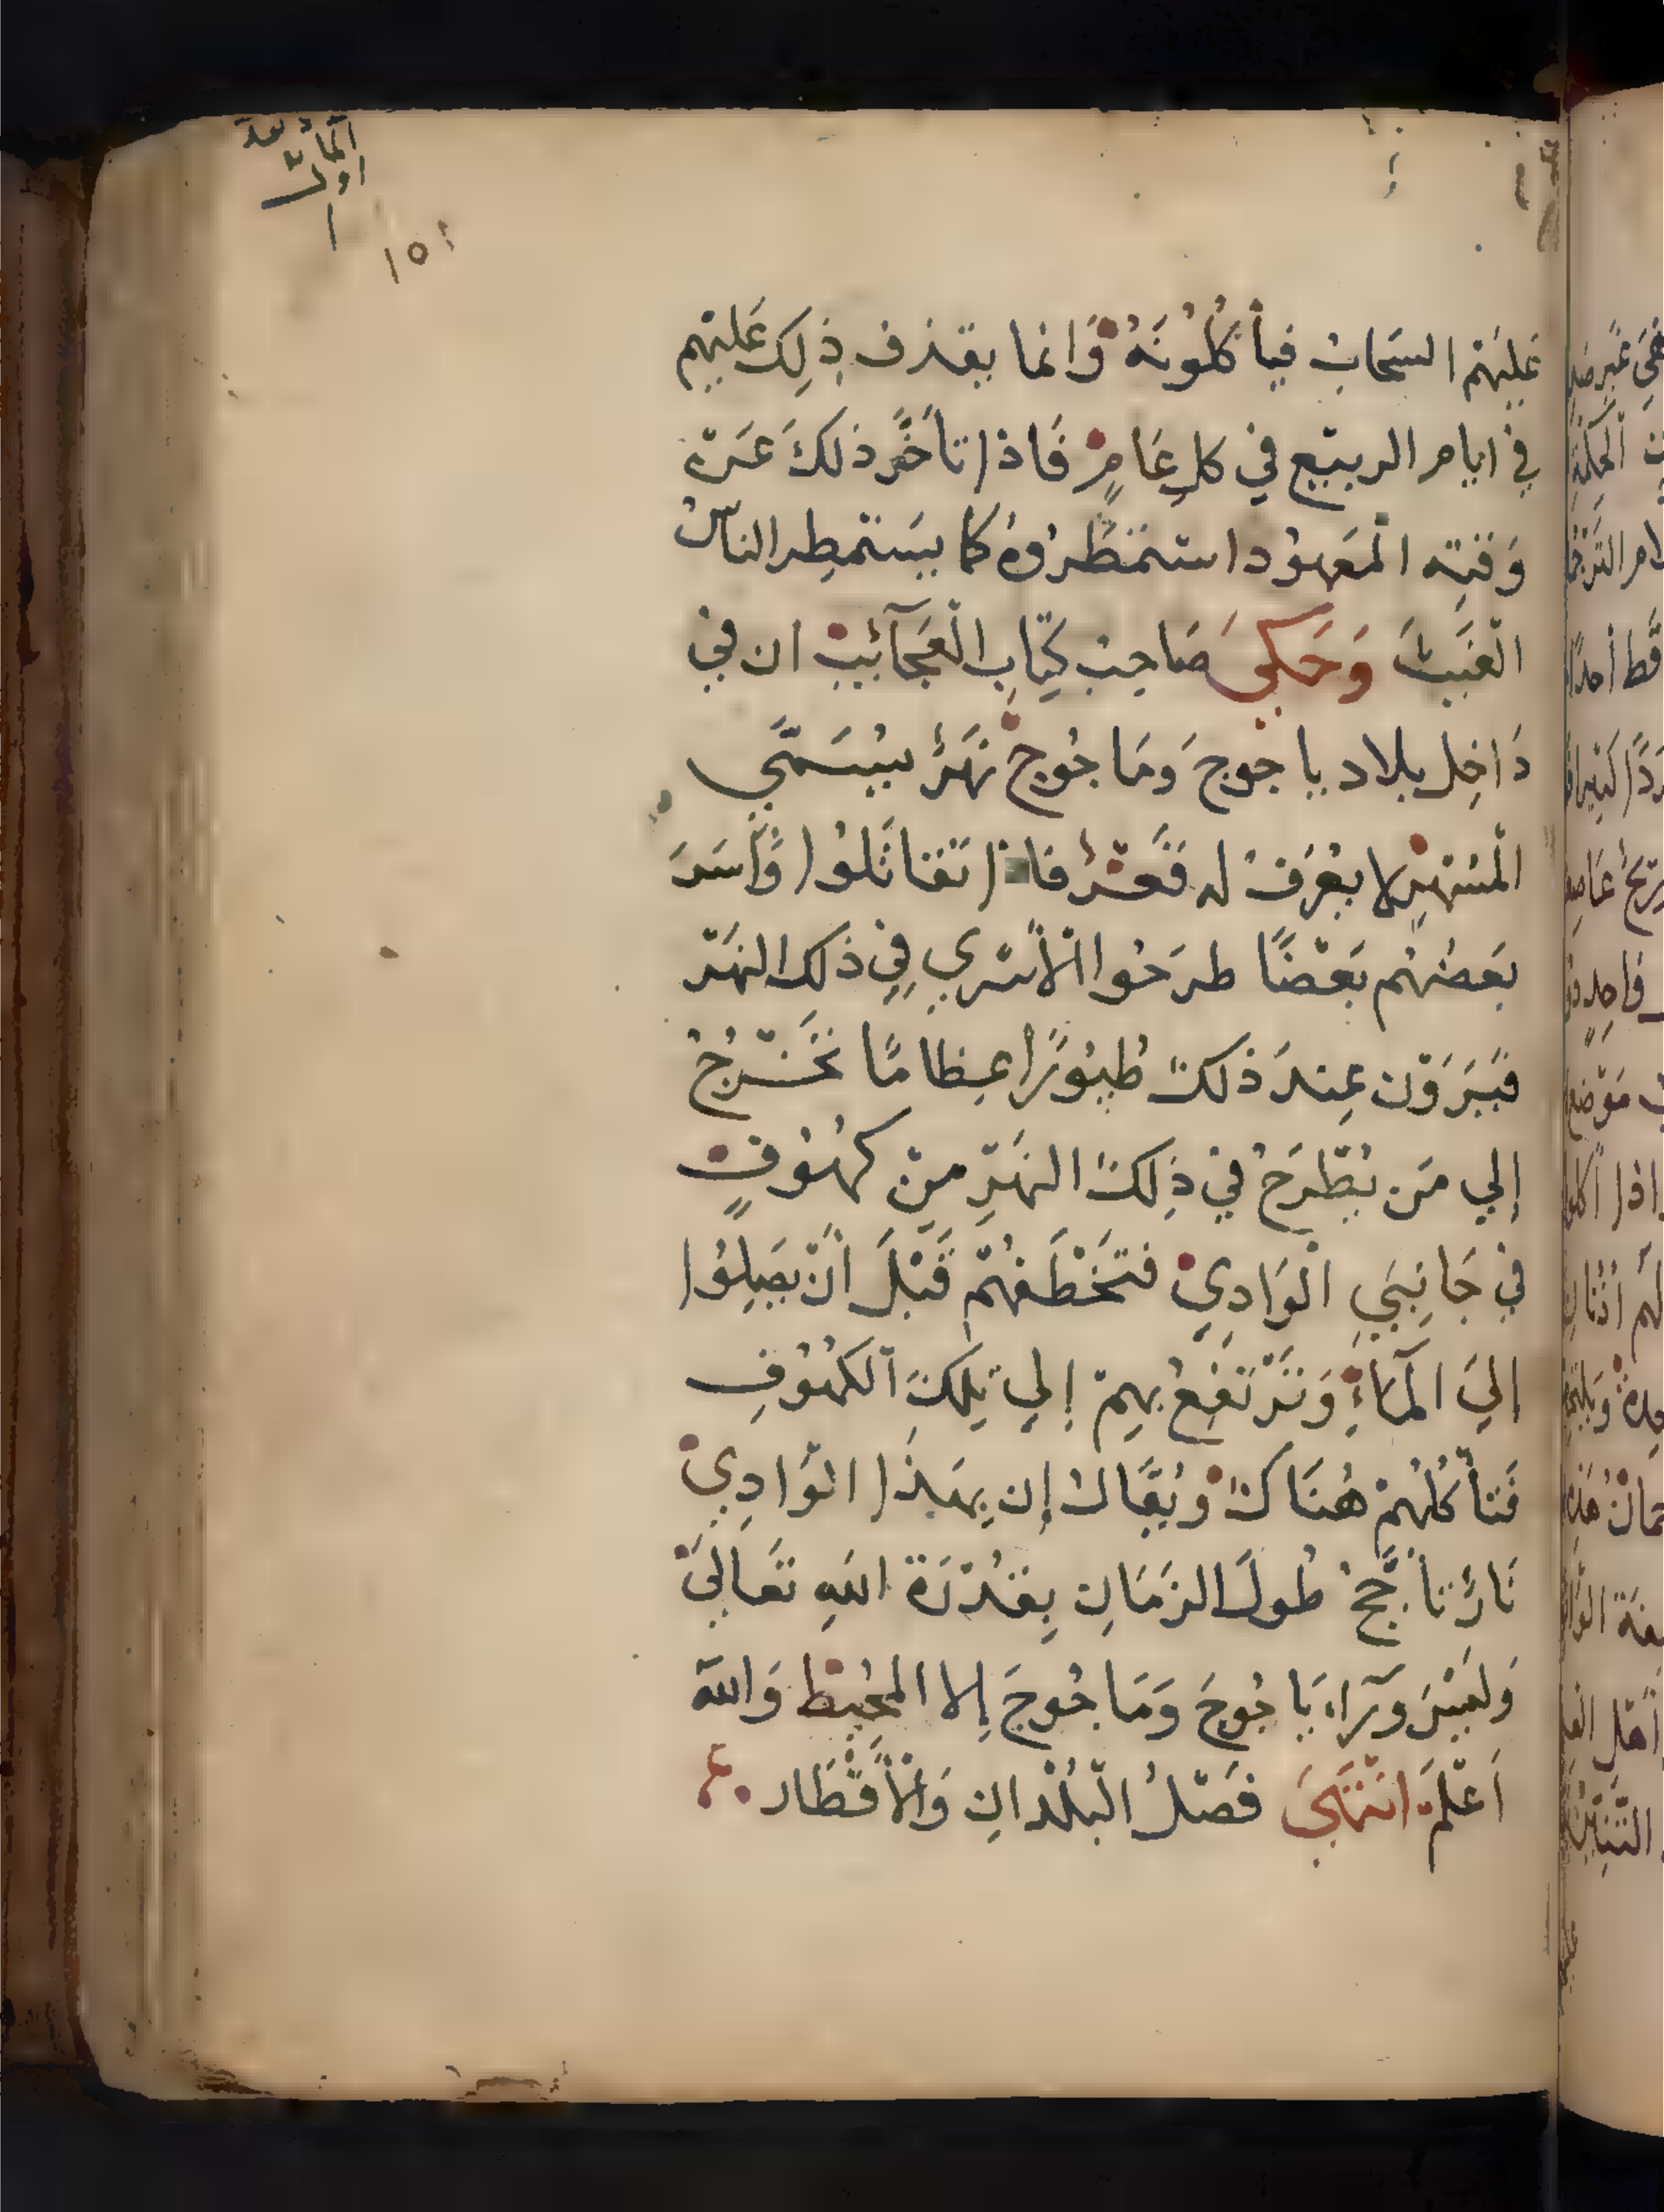 ١٥١
عَلَيْهِم السَحَابُ فيأكُلُونَهُ وَانما يقذف ذِلِكَ عَلَيْهِم
في ايام الربيع في كل عَامٍ فَاذا تأخَّر ذلكَ عَنْ
وَقتِهِ الْمَعهُود استمْطَرُوهُ كما يَسْتمطِر الناسُ
الْغَيثَ وَحَكي صَاحِبُ كِتَابِ الْعَجَآئِبِ ان في
دَاخِل بلاد ياجوجَ وَمَاجُوج نَهَرٌ يُسَمَّي
الْمسْهِر لا يعْرَفُ له قَعْرٌ فاذا تَقَاتَلُوا وَأَسَرَ
بَعضُهُم بَعْضًا طرَحُوا الْأَسْرَي فِي ذلكَ النهَرْ
فيَرَوْن عِندَ ذلكَ طُيُورًا عِظامًا تَخْرُجُ
إلي مَن يُطْرَحُ في ذِلِكَ النهَرِ مِنْ كهُوفٍ
في جَانِبَيِ الْوَادِي فتَخْطَفُهُمْ قَبْلَ أَنْ يَصِلُوا
إليَ الْمَآءِ وَتَرْتَفِعُ بِهِمْ إلي تِلكَ الكهُوْفِ
فَتأْكُلُهُمْ هُنَاكَ وَيُقَالُ إن بِهَذَا الْوَادِي
نَارٌ تأجَّجُ طُولَ الزمَانِ بِقُدْرَةِ اللهِ تَعَالَيَ
وَلَيْسَ وَرَآءَ يَاجُوجَ وَمَاجُوجَ إلا المحُيْط وَاللهُ
اَعْلَمُ انتَهَيَ فَصْلُ الْبُلْدَانِ وَالْأَقْطَار